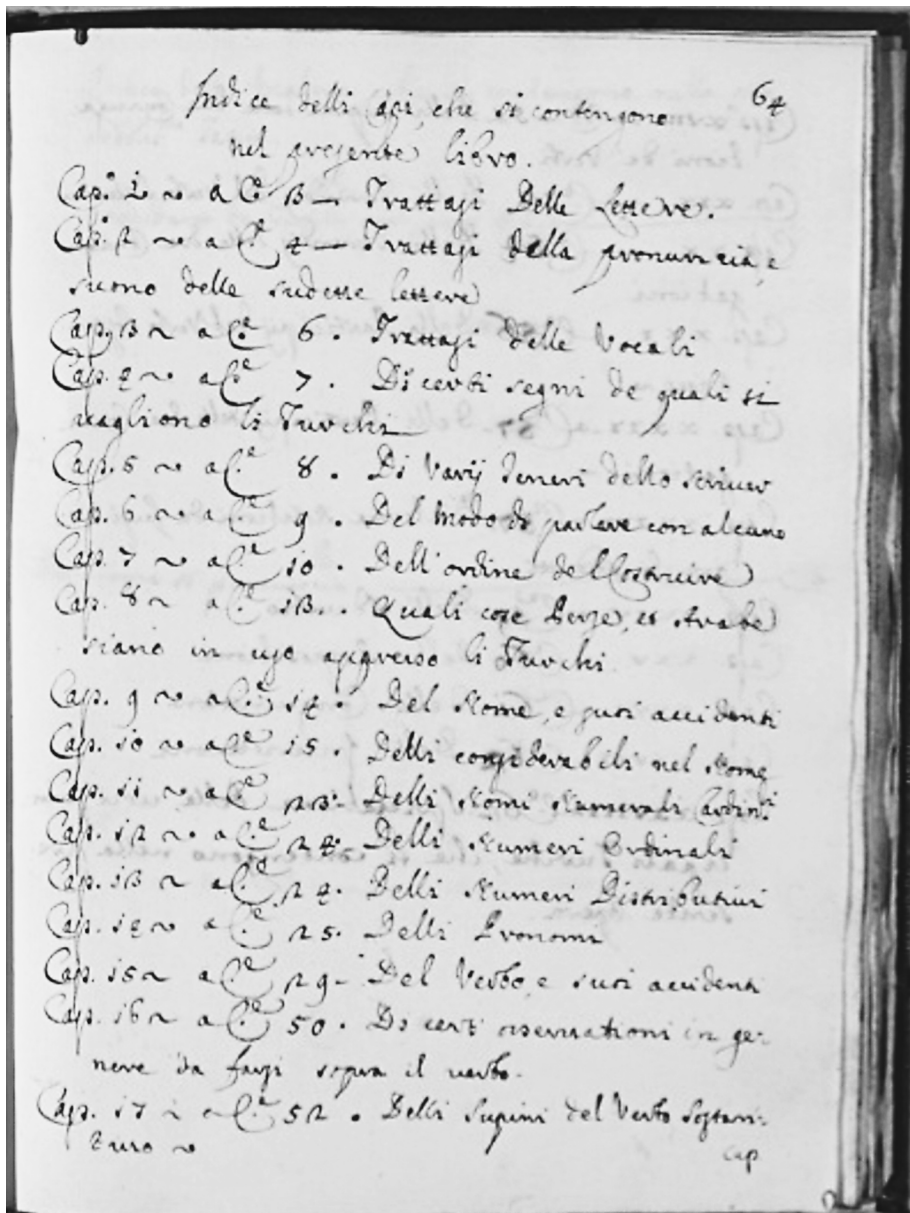 64
Indice delli Capi, che si contengono
nel presente libro.
Cap.º 1 ~ a C.ᵉ 3 — Trattasi Delle Lettere.
Cap. 2 ~ a C.ᵉ 4 — Trattasi della pronuncia, e
suono delle sudette lettere
Cap. 3 ~ a C.ᵉ 6 . Trattasi delle Vocali
Cap. 4 ~ a C.ᵉ 7 . Di certi segni de quali si
vagliono li Turchi
Cap. 5 ~ a C.ᵉ 8 . Di Varij Generi dello scriver
Cap. 6 ~ a C.ᵉ 9 . Del Modo di parlare con alcuno
Cap. 7 ~ a C.ᵉ 10 . Dell'ordine del Costruire
Cap. 8 ~ a C.ᵉ 13 . Quali cose Perse, et Arabe
siano in uso appresso li Turchi.
Cap. 9 ~ a C.ᵉ 14 . Del Nome, e suoi accidenti
Cap. 10 ~ a C.ᵉ 15 . Delli considerabili nel Nome
Cap. 11 ~ a C.ᵉ 23 . Delli Nomi Numerali Cardin:
Cap. 12 ~ a C.ᵉ 24 . Delli Numeri Ordinali
Cap. 13 ~ a C.ᵉ 24 . Delli Numeri Distributivi
Cap. 14 ~ a C.ᵉ 25 . Delli Pronomi
Cap. 15 ~ a C.ᵉ 29 - Del Verbo, e suoi accidenti
Cap. 16 ~ a C.ᵉ 50 . Di certi osservationi in ge:
nere da farsi sopra il verbo.
Cap. 17 ~ a C.ᵉ 52 . Delli Supini del Verbo Sostan:
Cap